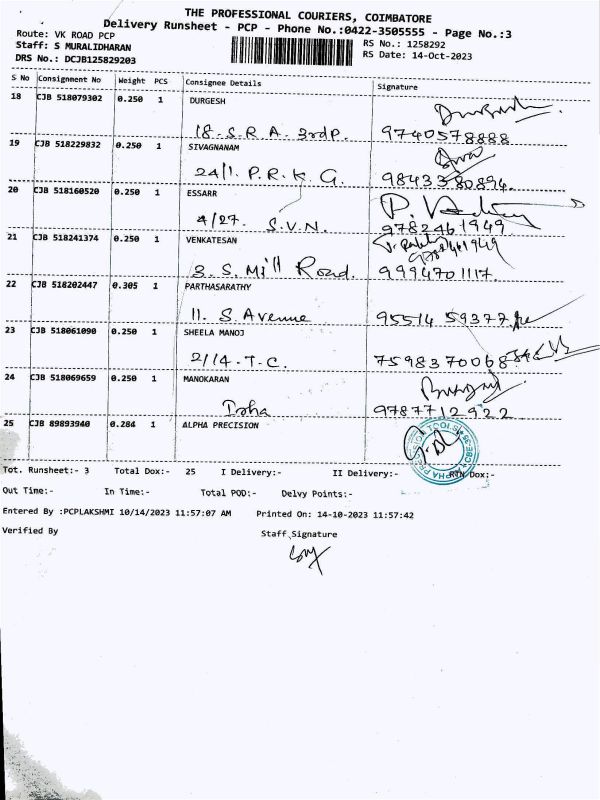 THE PROFESSIONAL COURIERS, COIMBATORE
Delivery Runsheet - PCP - Phone No.:0422-3505555 - Page No.:3
Route: VK ROAD PCP
Staff: S MURALIDHARAN
DRS No.: DCJB125829203
RS No.: 1258292
RS Date: 14-Oct-2023
S No Consignment No Weight PCS Consignee Details Signature
18 CJB 518079302 0.250 1 DURGESH
18-S.R.A. 3rdp. 9740578888
19 CJB 518229832 0.250 1 SIVAGNANAM
24/1. P.R.K.G. 9843380894.
20 CJB 518160520 0.250 1 ESSARR
4/27. S.V.N. 9782461949
21 CJB 518241374 0.250 1 VENKATESAN
3. S. Mill Road. 9994701117.
22 CJB 518202447 0.305 1 PARTHASARATHY
11. S. Avenue 95514 59377
23 CJB 518061090 0.250 1 SHEELA MANOJ
2/14-T-C. 7598370068
24 CJB 518069659 0.250 1 MANOKARAN
9787712922
25 CJB 89893940 0.284 1 ALPHA PRECISION
ALPHA PRECISION TOOLS CBE
Tot. Runsheet:- 3 Total Dox:- 25 I Delivery:- II Delivery:- RTN Dox:-
Out Time:- In Time:- Total POD:- Delvy Points:-
Entered By :PCPLAKSHMI 10/14/2023 11:57:07 AM Printed On: 14-10-2023 11:57:42
Verified By Staff Signature